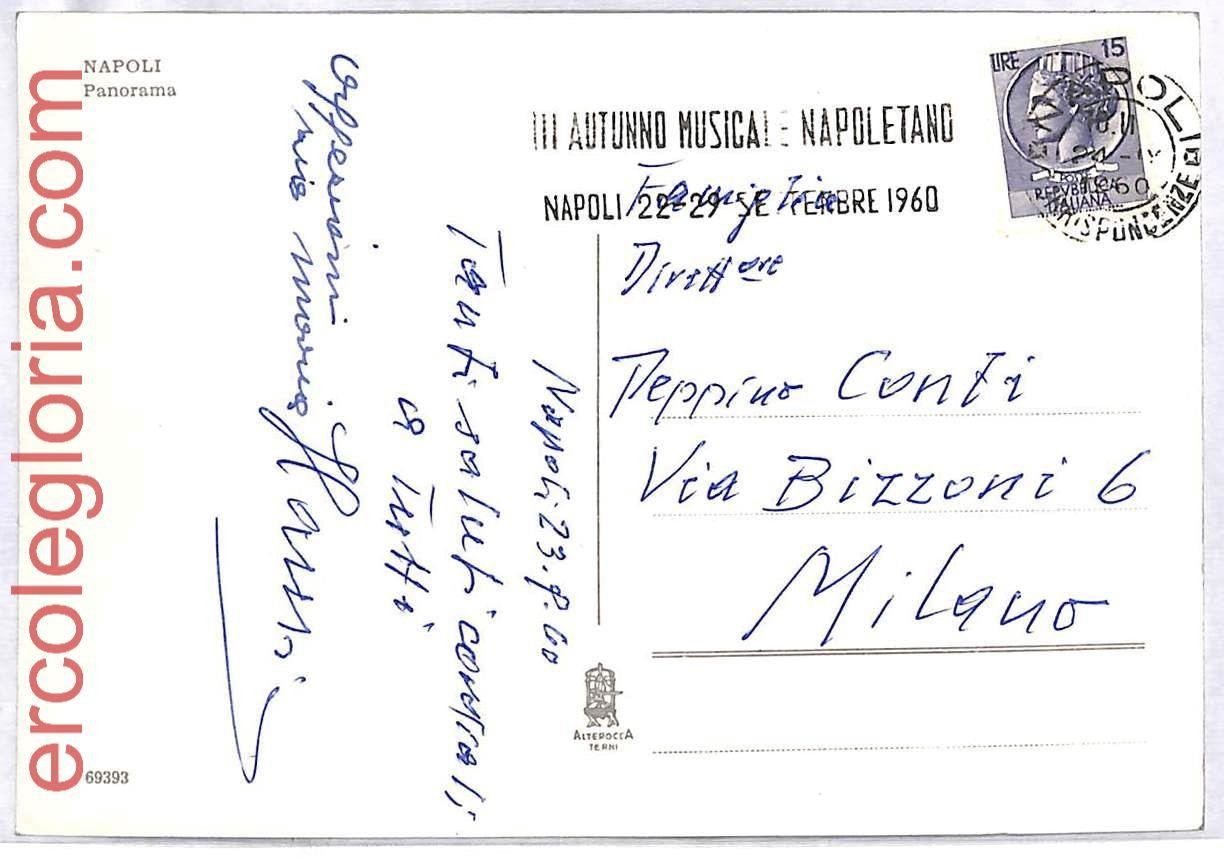 NAPOLI
Panorama
ercolegloria.com
69393
III AUTUNNO MUSICALE NAPOLETANO
NAPOLI 22-29 SETTEMBRE 1960
LIRE 15
POSTE
REPVBBLICA
ITALIANA
Famiglia
Direttore
Peppino Conti
Via Bizzoni 6
Milano
Napoli 23.9.60
Tanti saluti cordiali
a tutti
ALTEROCCA
TERNI